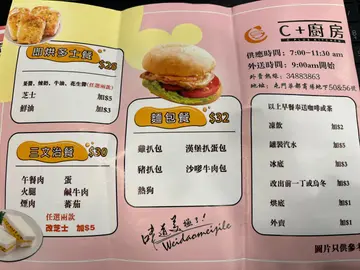 即烘多士餐 $28
多醬、煉奶、牛油、花生醬(任選兩款)
芝士 加$5
鮮油 加$3
三文治餐 $30
午餐肉 蛋
火腿 鹹牛肉
煙肉 蕃茄
任選兩款
改芝士 加$5
麵包餐 $32
雞扒包 漢堡扒蛋包
豬扒包 沙嗲牛肉包
熱狗
味道美極了!
Weidaomeijile
C+廚房
C PLUS KITCHEN
供應時間: 7:00-11:30 am
外送時間: 9:00am開始
外賣熱線: 34883863
地址: 屯門華都商場地下50&56號
以上早餐奉送咖啡或茶
凍飲 加$2
罐裝汽水 加$5
冰底 加$3
改出前一丁或烏冬 加$3
烘底 加$1
外賣 加$1
圖片只供參考